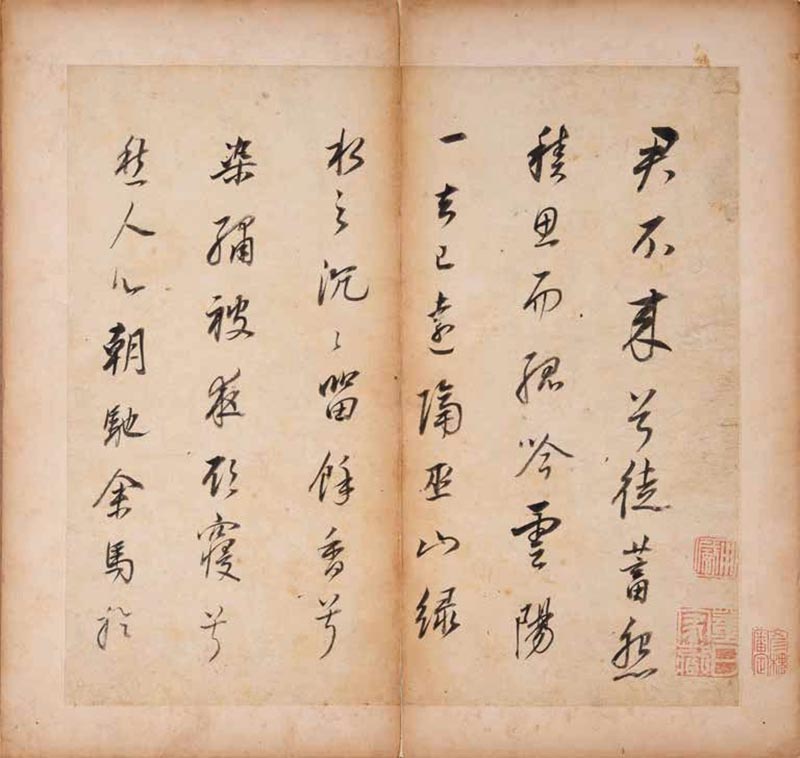 君不來兮徒蓄怨
積思而孤吟雲陽
一去已遠隔巫山綠
水之沉〻留餘香兮
染繡被夜欲寢兮
愁人心朝馳余馬於